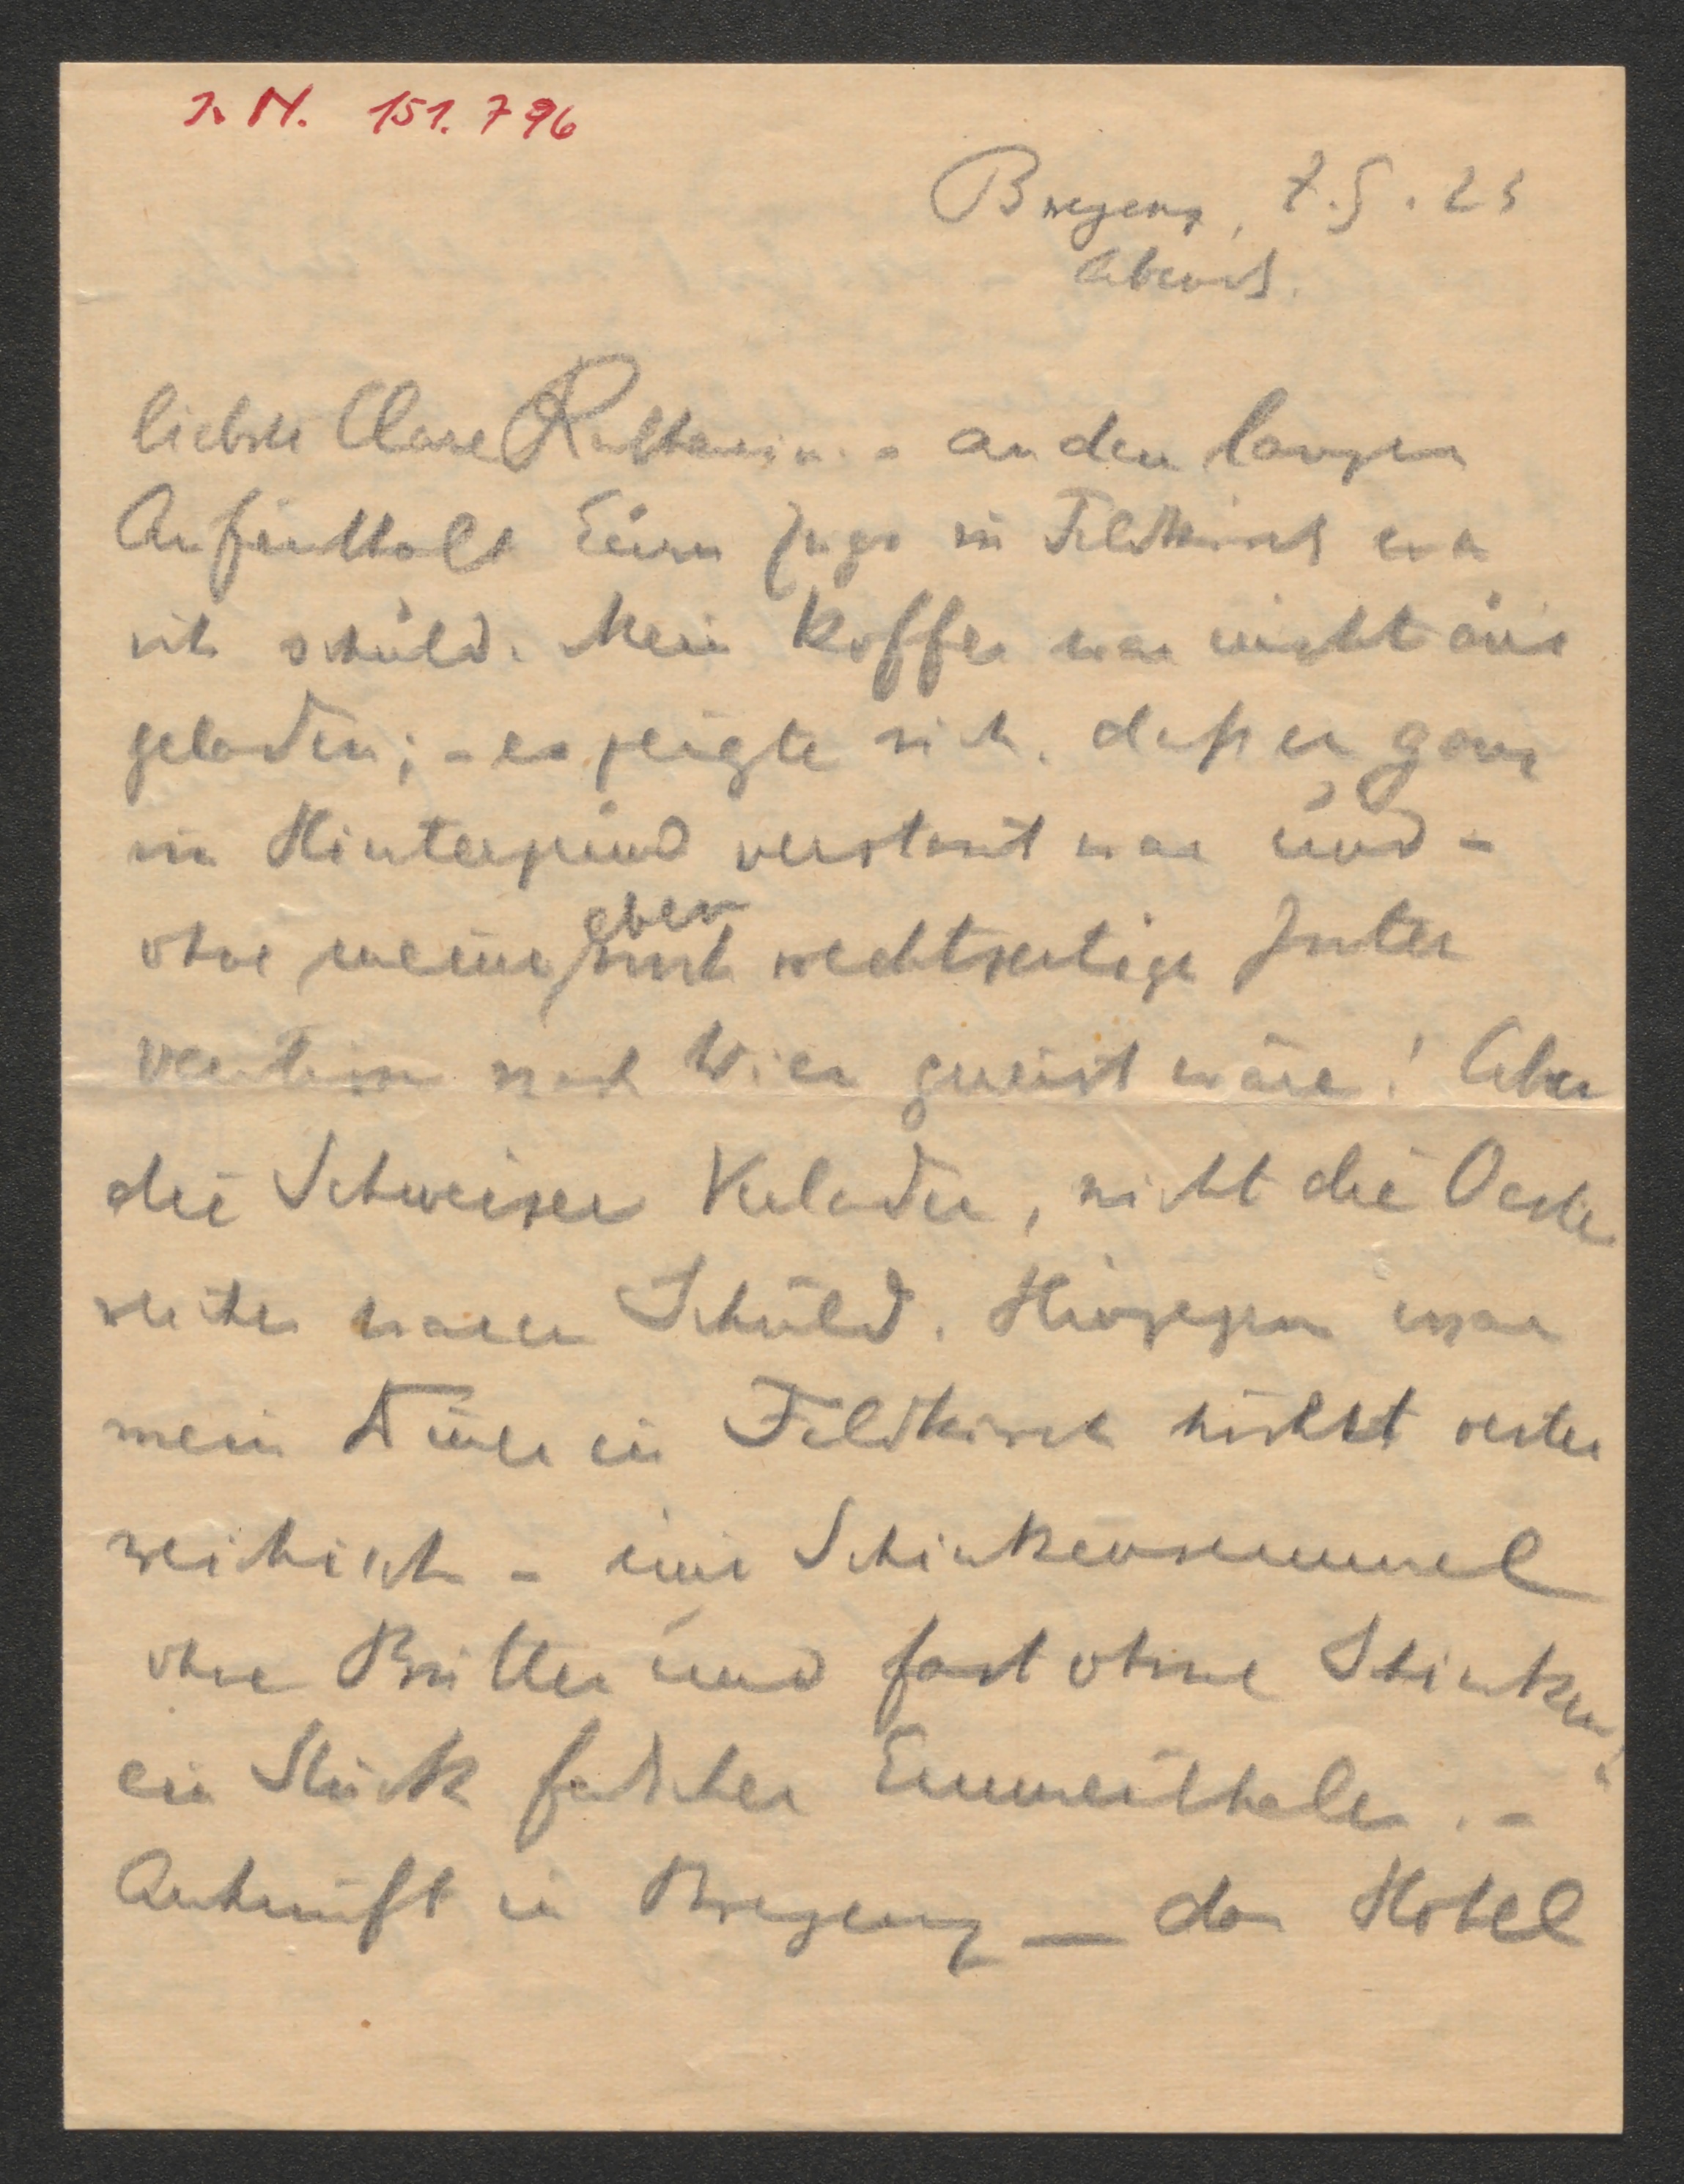 I. N. 151.796
Bregenz, 7.9.23
Abends.
liebste Clare Katharina. - an den langen
Aufenthalt Eures Zugs in Feldkirch war
ich schuld. Mein Koffer war nicht aus
geladen; - es zeigte sich, daß er ganz
im Hintergrund verstaut war und -
ohne meine eben noch rechtzeitige Inter
vention nach Wien gereist wäre! Aber
die Schweizer Verlader, nicht die Oester
reicher waren Schuld. Hingegen war
mein Diner in Feldkirch höchst oester
reichisch - eine Schinkensemmel
ohne Butter und fast ohne Schinken,
ein Stück falscher Emmenthaler. -
Ankunft in Bregenz — das Hotel